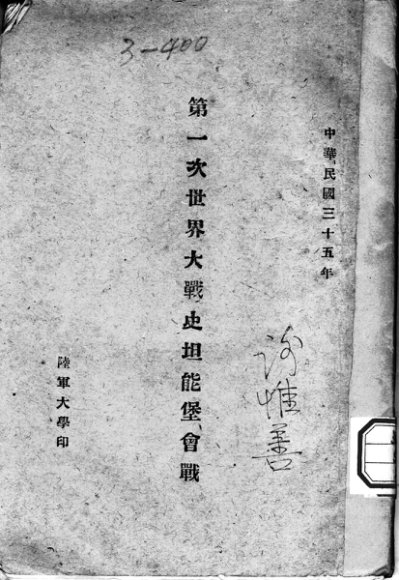 3-400
中華民國三十五年
第一次世界大戰史坦能堡會戰
惟善
陸軍大學印